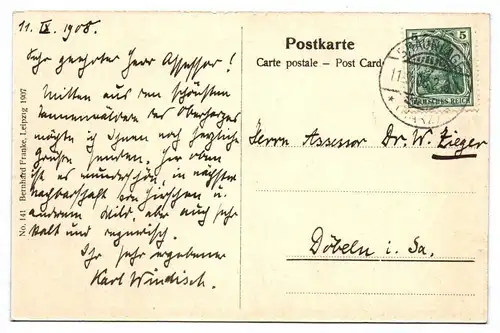 11. IX. 1908.
Sehr geehrter Herr Assessor!
Mitten aus den schönsten
Tannenwäldern des Oberharzes
möchte ich Ihnen noch herzliche
Grüße senden. Hier oben
ist es wunderschön in nächster
Nachbarschaft von Hirschen u.
anderem Wild, aber auch sehr
kalt und regnerisch.
Ihr sehr ergebener
Karl Windisch.
No. 141 Bernhard Franke, Leipzig 1907
Postkarte
Carte postale – Post Card
5 5
DEUTSCHES REICH
BRAUNLAGE
Herrn Assessor Dr. W. Zieger
Döbeln i. Sa.